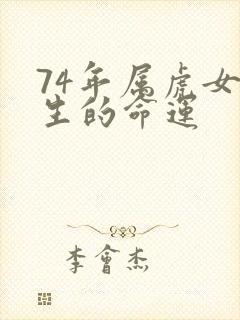 74年属虎女
生的命运
李會杰